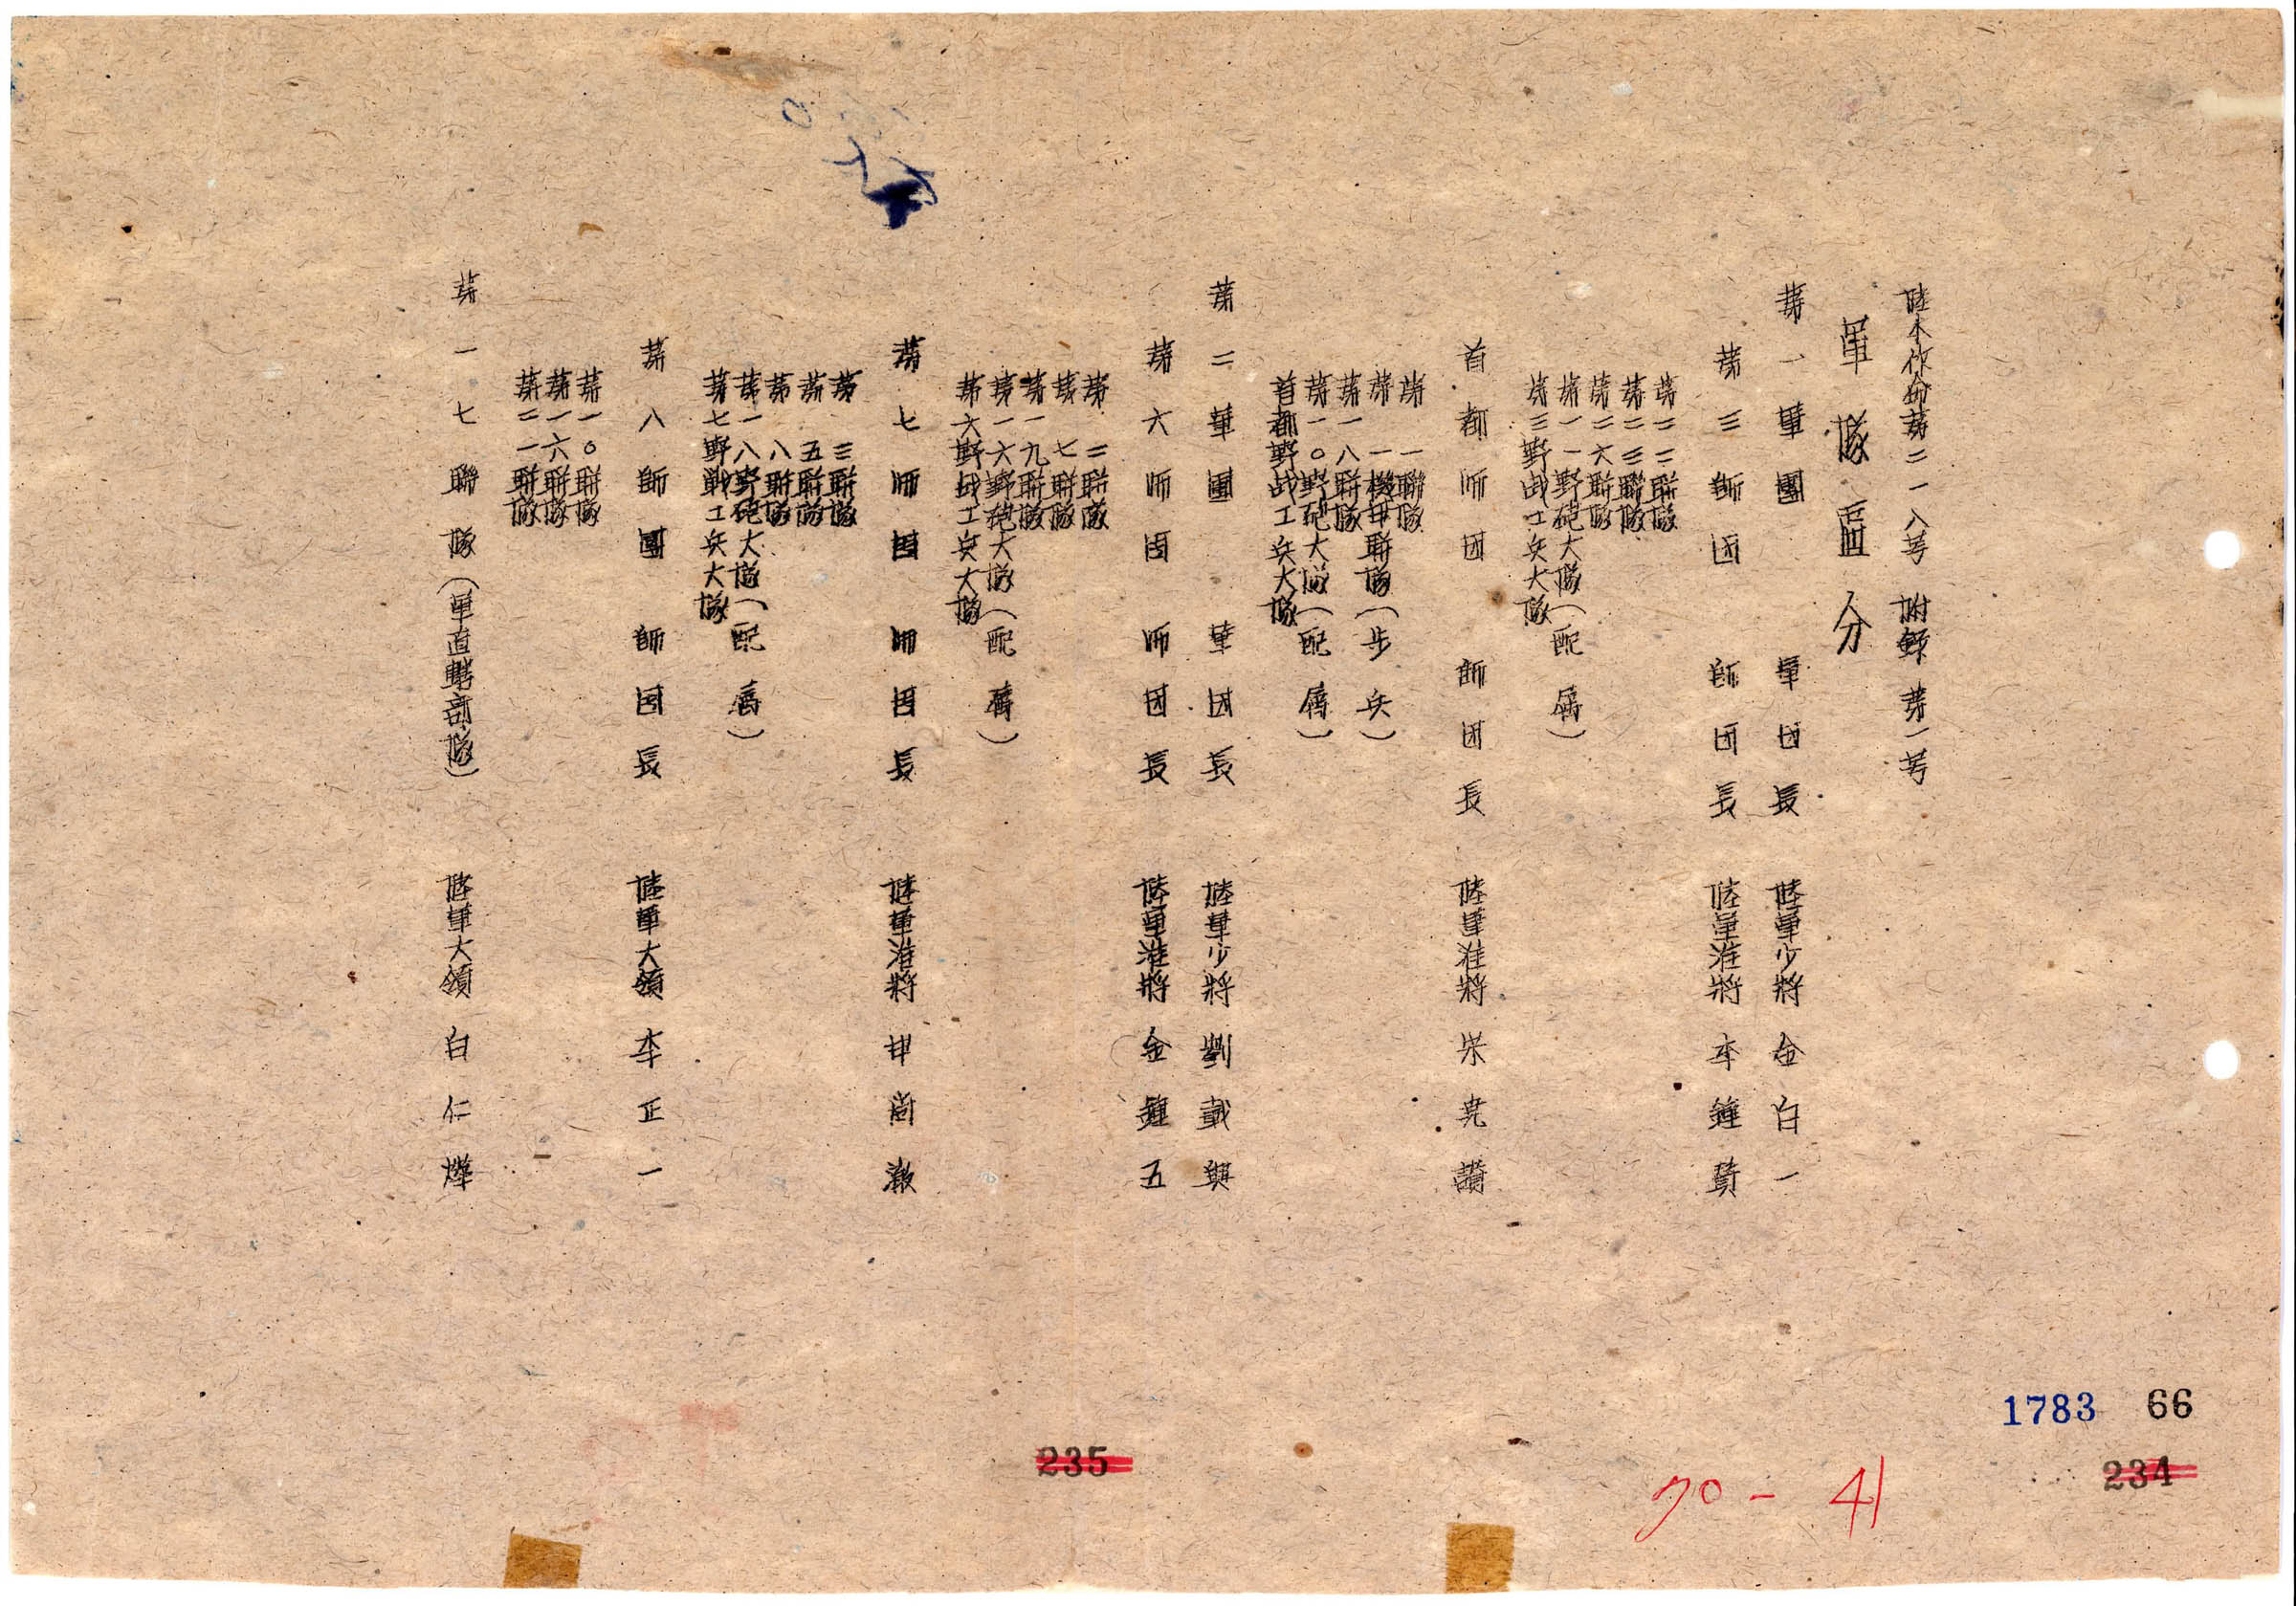 陸本作命第二一八号 附録 第一号
軍隊區分
第一軍團 軍団長 陸軍少將 金白一
第三師団 師団長 陸軍准將 李鍾贊
第二二聯隊
第二三聯隊
第二六聯隊
第一一野砲大隊(配属)
第三野战工兵大隊
首都師団 師団長 陸軍准將 宋堯讚
第一聯隊
第一機甲聯隊(步兵)
第一八聯隊
第一〇野砲大隊(配属)
首都野战工兵大隊
第二軍團 軍団長 陸軍少將 劉載興
第六师団 师団長 陸軍准將 金鍾五
第二聯隊
第七聯隊
第一九聯隊
第一六野砲大隊(配属)
第六野战工兵大隊
第七师団 师団長 陸軍准將 申尚澈
第三聯隊
第五聯隊
第八聯隊
第一八野砲大隊(配属)
第七野戰工兵大隊
第八師團 師団長 陸軍大領 李正一
第一〇聯隊
第一六聯隊
第二一聯隊
第一七聯隊(軍直轄部隊) 陸軍大領 白仁燁
1783 66
234
235
70-41